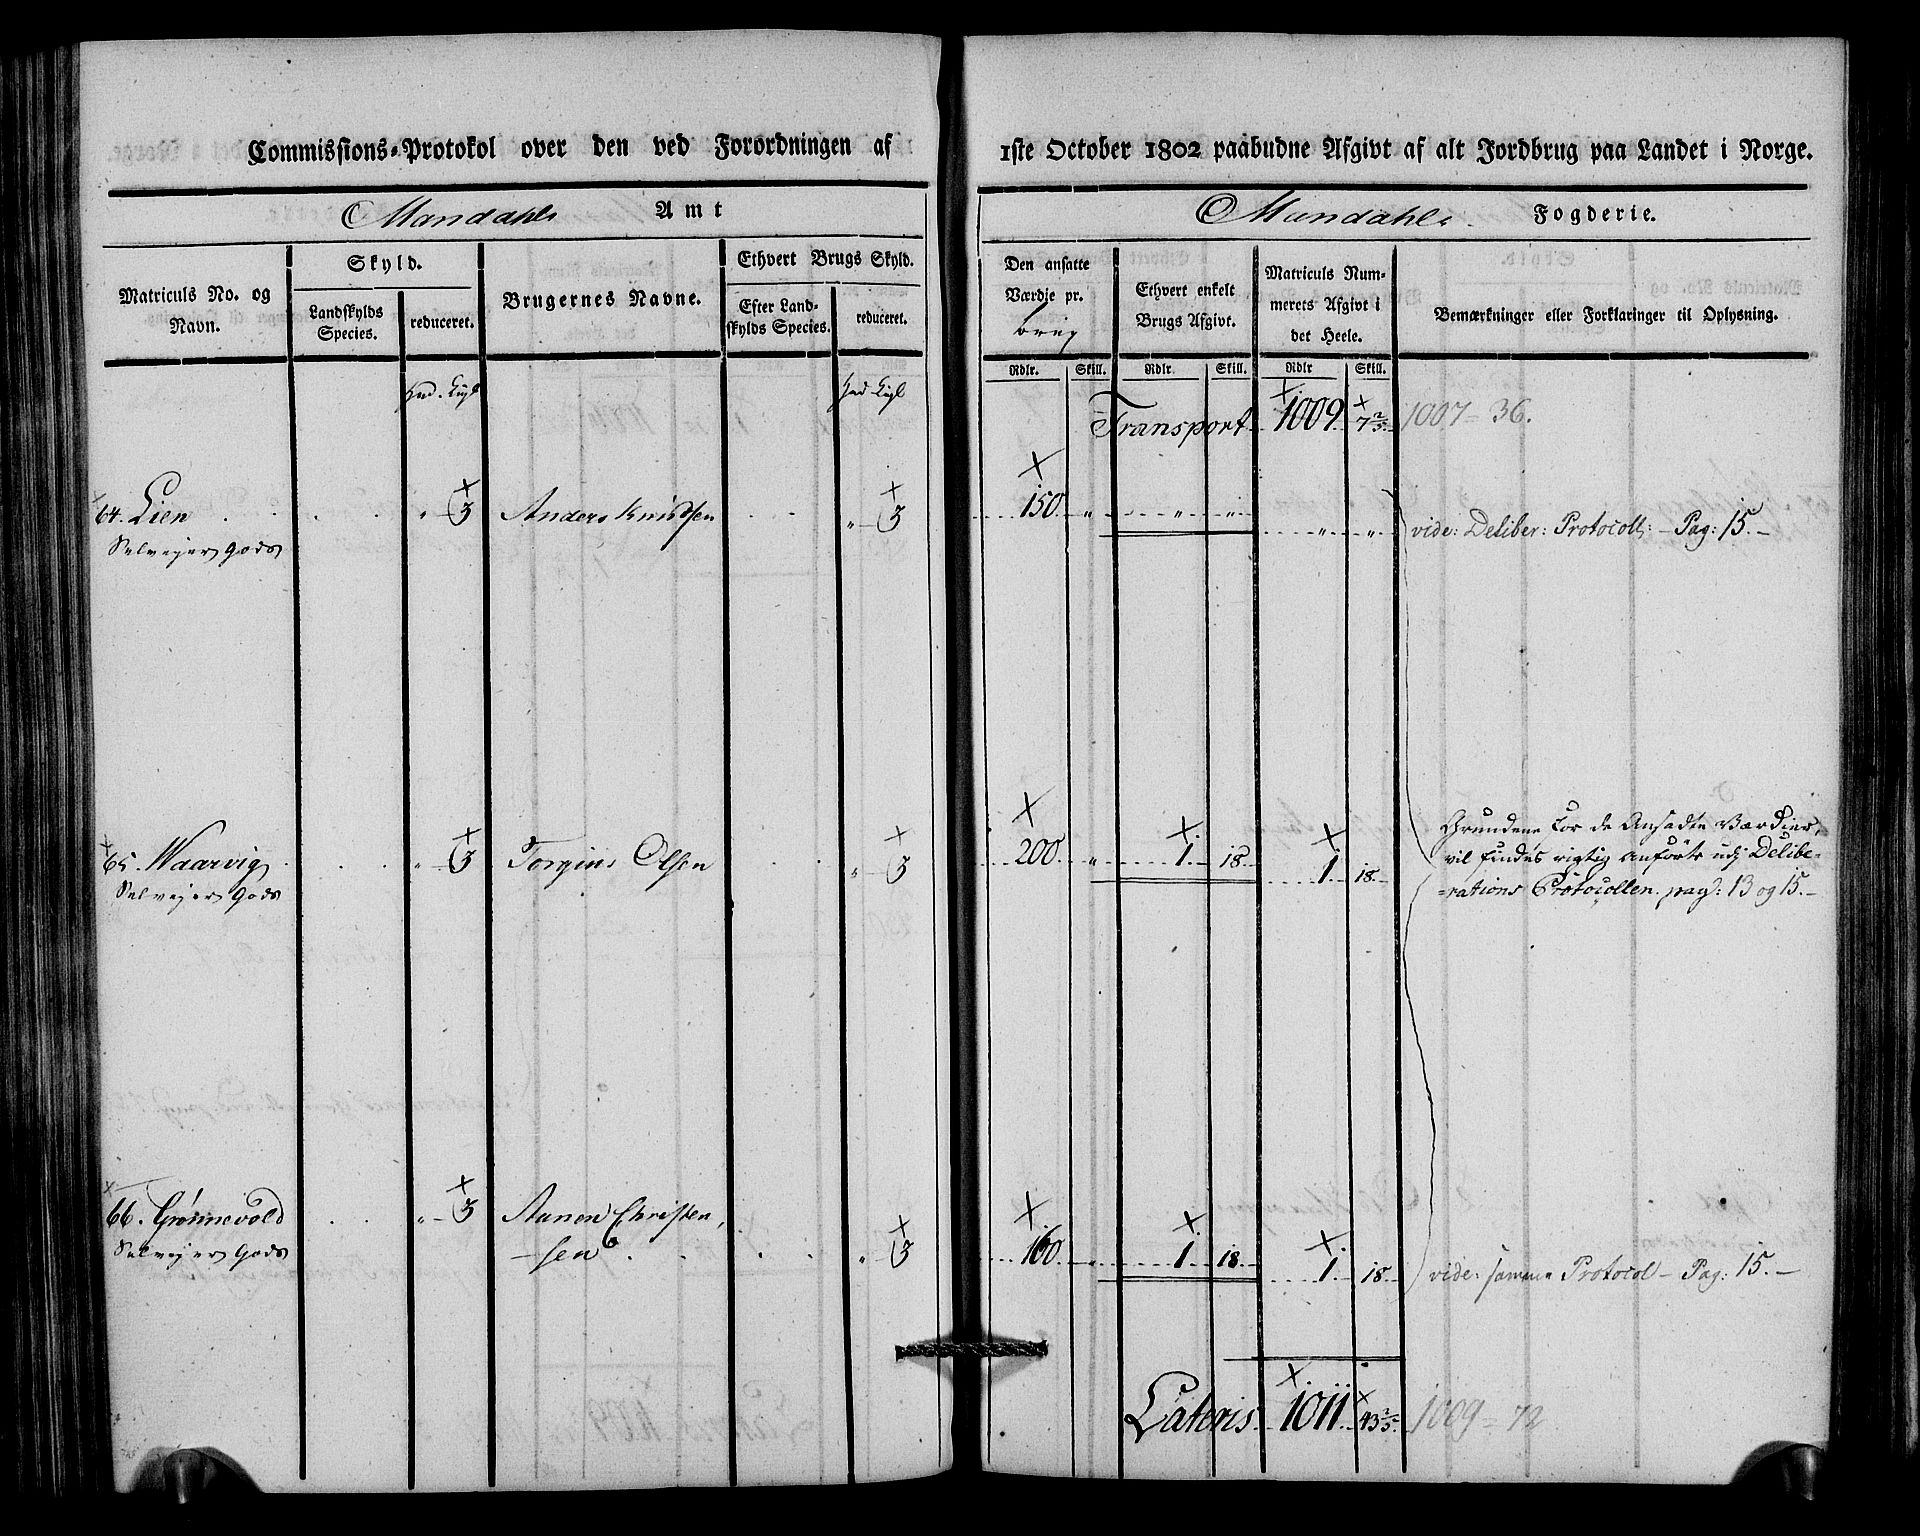 Commissions-Protokol over den ved Forordningen af
Mandahls Amt
Matriculs No. og Navn.
Skyld.
Landskylds Species.
reduceret.
Brugernes Navne.
Ethvert Brugs Skyld.
Efter Landskylds Species.
reduceret.
64. Lien . . . . „ 3 Anders Knudsen . . „ 3
Selvejer Gods
65. Waarvig . . . „ 3 Torgius Olsen . . „ 3
Selvejer Gods
66. Grønnevold . . „ 3 Aanen Christen
Selvejer Gods -sen . . . . „ 3
1ste October 1802 paabudne Afgivt af alt Jordbrug paa Landet i Norge.
Mandahls Fogderie.
Den ansatte Værdie pr. brug
Ethvert enkelt Brugs Afgivt.
Matriculs Nummerets Afgivt i det Heele.
Bemærkninger eller Forklaringer til Oplysning.
Rdlr. Skill. Rdlr. Skill. Rdlr Skill.
Transport 1009 7 2/5 1007 = 36.
150 „ „ „
„ „ vide: Deliber: Protocoll: - Pag: 15. -
Grundene for de Ansadte Værdier,
200 „ 1. 18. 1. 18. vil findes rigtig anførte udj Delibe-
-rations Protocollen pag: 13 og 15. -
160 „ 1. 18. 1. 18. vide: samme Protocol - Pag: 15. -
Lateris 1011. 43 2/5. 1009 = 72